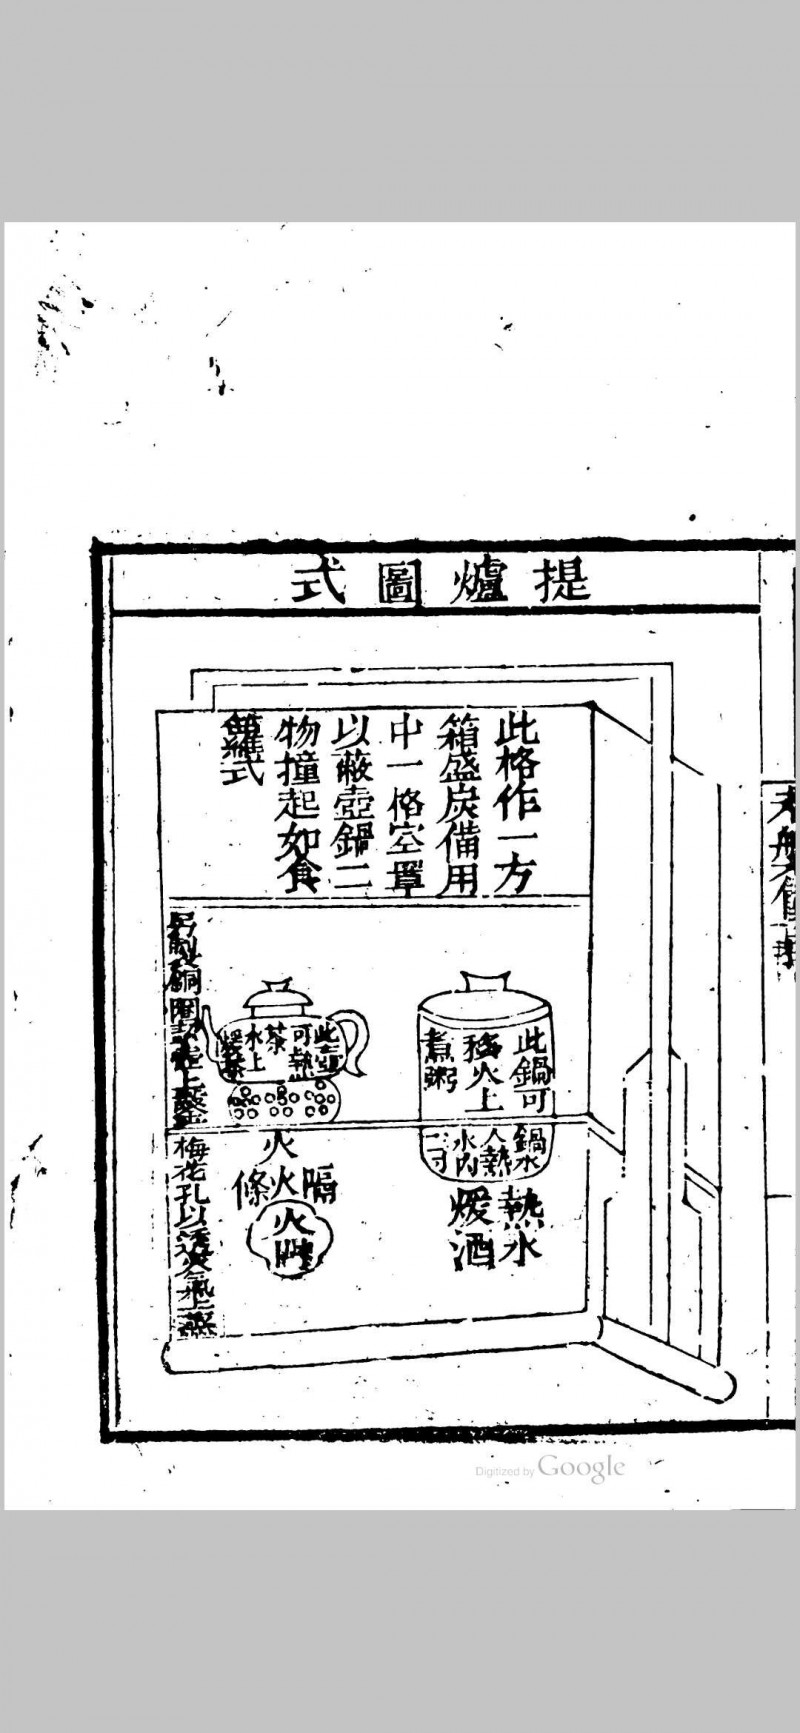 提爐圖式
此格作一方
箱盛炭備用
中一格空罩
以蔽壺鍋二
物撞起如食
籮式
此鍋可
移火上
煮粥
鍋水
人熱
水內
二寸
熱水
煖酒
此壺
可熱
茶
水上
火
隔火條
火門
梅花孔以透火氣上蒸
Digitized by Google